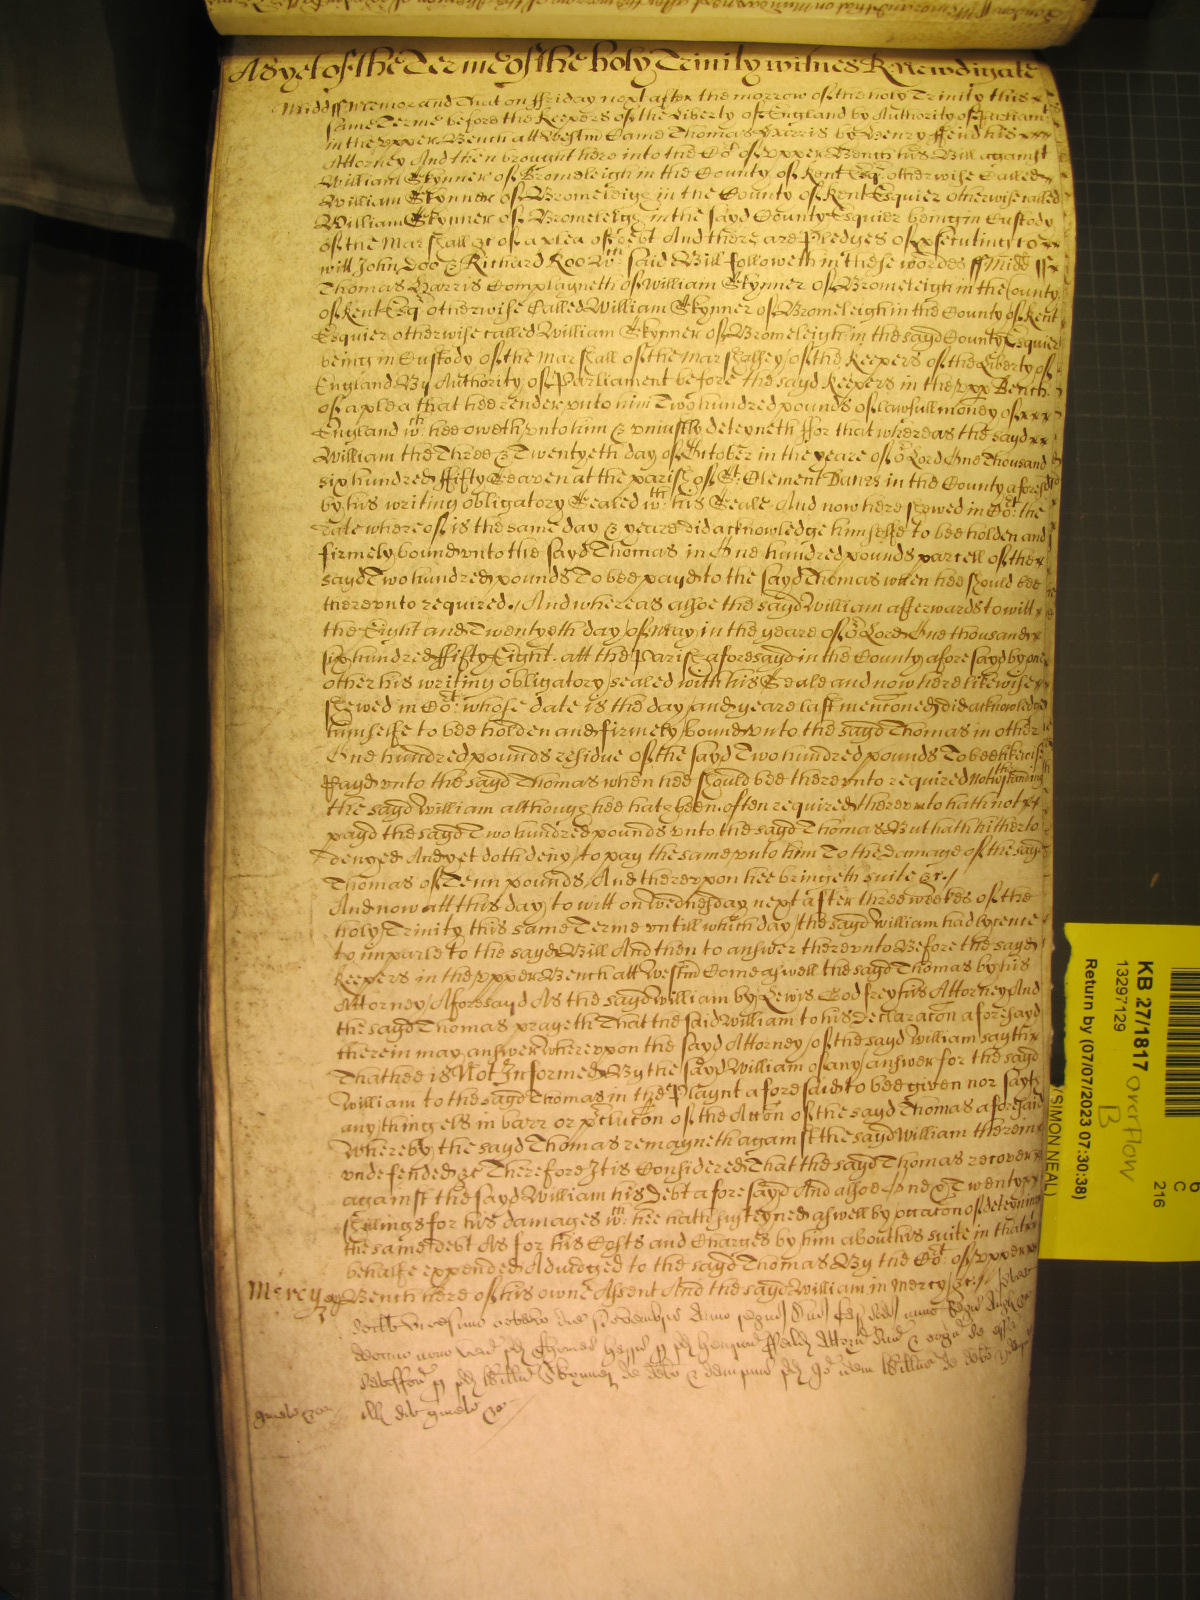 As yet of the Terme of the holy Trinity witnes R Newdigate
Midd ss Memorand That on ffriday next after the morrow of the holy Trinity this
same Terme before the Keepers of the Liberty of England by Authority of Parliamt
in the vpper Bench att Westm Came Thomas Harris by Henry ffeild his
Attorney And then brought here into the Cot of vpper Bench his Bill against
William Skynner of Bromeleigh in the County of Kent Esqr otherwise Called
William Skynner of Bromeleigh in the County of Kent Esquier otherwise called
William Skynner of Bromeleigh in the sayd County Esquier being in Custody
of the Marshall &c of a plea of Debt And there are Pledges of psecuting to
witt John Doo & Richard Roo Wch said Bill followeth in these wordes ss Midd ss
Thomas Harris Complayneth of William Skynner of Bromeleigh in the County
of Kent Esqr otherwise Called William Skynner of Bromeleigh in the County of Kent
Esquier otherwise called William Skynner of Bromeleigh in the sayd County Esquier
being in Custody of the Marshall of the Marshalsey of the Keepers of the Liberty of
England By Authority of Parliament before the sayd Keepers in the vpp Bench
of a plea that hee render vnto him Two hundred pounds of lawfull money of
England wch hee oweth vnto him & vniustly deteyneth ffor that whereas the sayd
William the Three & Twentyeth day of October in the yeare of or Lord One Thousand
six hundred ffifty Seaven at the parish of St Clement Danes in the County aforesayd
by his writing obligatory Sealed wth his Seale And now here shewed in Cot the
Date whereof is the same day & yeare did acknowledge himselfe to bee holden and
firmely bound vnto the sayd Thomas in One hundred pounds parcell of the
sayd Two hundred pounds To bee payd to the sayd Thomas when hee should bee
therevnto required / And whereas alsoe the sayd William afterwards to witt
the Eight and Twentyeth day of May in the yeare of or Lord One thousand
six hundred ffifty Eight att the Parish aforesayd in the County aforesayd by one
other his writing obligatory sealed with his Seale and now here likewise
shewed in Cot whose date is the day and yeare last mentioned did acknowledge
himselfe to bee holden and firmely bound vnto the sayd Thomas in other
One hundred pounds residue of the sayd Two hundred pounds To bee likewise
Payd vnto the sayd Thomas when hee should bee therevnto required Notwthstanding
the sayd William although hee hath been often required therevnto hath not
payd the sayd Two hundred pounds vnto the sayd Thomas But hath hitherto
denyed And yet doth deny to pay the same vnto him To the Damage of the sayd
Thomas of Tenn pounds And therevpon hee bringeth suite &c /
And now att this day to witt on Wednesday next after three weekes of the
holy Trinity this same Terme vntill which day the sayd William had lycence
to imparle to the sayd Bill And then to answer therevnto Before the sayd
Keepers in the vpper Bench att Westm Come aswell the sayd Thomas by his
Attorney Aforesayd As the sayd William by Lewis Godfrey his Attorney And
the sayd Thomas prayeth That the said William to his Declaracon aforesayd
therein may answer Wherevpon the sayd Attorney of the sayd William sayth
That hee is Not Informed By the sayd William of any answer for the sayd
William to the sayd Thomas in the Playnt aforesaid to bee given nor sayth
any thing els in barr or pclucon of the Accon of the sayd Thomas aforesaid
Whereby the sayd Thomas remayneth against the sayd William therein
vndefended &c Therefore It is Considered That the sayd Thomas recover
against the sayd William his Debt aforesayd And alsoe One & Twenty
shillings for his damages wch hee hath susteyned aswell by occacon of deteyning
the same debt As for his Costs and Charges by him about his suite in that
behalfe expended Adiudged to the sayd Thomas By the Cot of vpper
Mercy Bench here of his owne Assent And the sayd William in Mercy &c /
KB 27/1817
13297129
Return by (07/07/2023 07:30:38)
(SIMON NEAL)
overflow
B
C
216